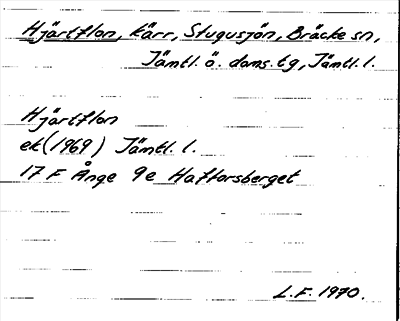 Hjärtflon, kärr, Stugusjön, Bräcke sn,
Jämtl. ö. doms. tg, Jämtl. l.
Hjärtflon
ek (1969) Jämtl. l.
17 F Ånge 9e Haffarsberget
L.F. 1970.